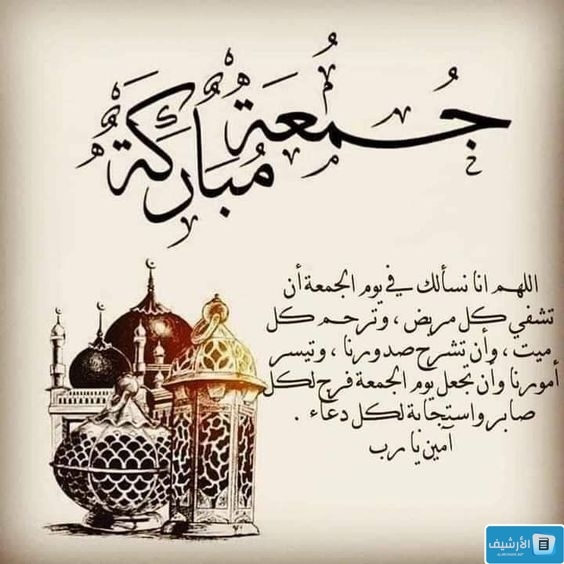 جُمُعَة
مُبَارَكَة
اللهم انا نسألك في يوم الجمعة أن
تشفي كل مريض ، وترحم كل
ميت ، وأن تشرح صدورنا ، وتيسر
أمورنا وأن تجعل يوم الجمعة فرح لكل
صابر واستجابة لكل دعاء .
آمين يا رب
الأرشيف